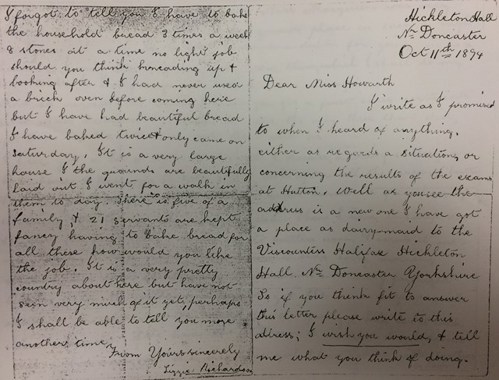 Hickleton Hall
Nr Doncaster
Oct 11th 1894
Dear Miss Howarth
I write as I promised
to when I heard of anything,
either as regards a situation, or
concerning the results of the exams
at Hutton. Well as you see the
adress is a new one I have got
a place as dairymaid to the
Viscountess Halifax Hickleton
Hall, Nr Doncaster Yorkshire
So if you think fit to answer
this letter please write to this
adress; I wish you would, & tell
me what you think of doing.
I forgot to tell you I have to bake
the household bread 3 times a week
8 stones at a time no light job
should you think kneading up &
looking after & I had never used
a brick oven before coming here
but I have had beautiful bread
I have baked twice & only came on
Saturday. It is a very large
house & the grounds are beautifully
laid out I went for a walk in
them to day. There is five of a
family & 21 servants are kept,
fancy having to bake bread for
all these how would you like
the job. It is a very pretty
country about here but have not
seen very much of it yet, perhaps
I shall be able to tell you more
another time,
From Yours sincerely
Lizzie Richardson